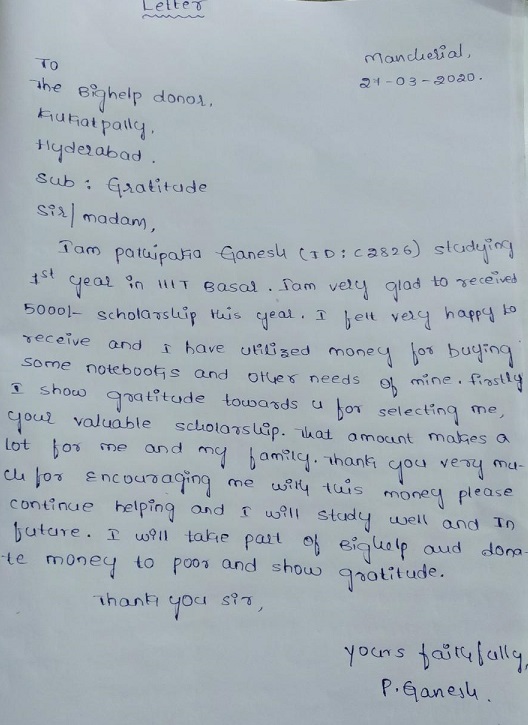 Letter
Mancherial,
27-03-2020.
To
The Bighelp donor,
Kukatpally,
Hyderabad.
Sub : Gratitude
Sir/madam,
I am palupaka Ganesh (ID: C2826) studying
1st year in IIIT Basar. I am very glad to received
5000/- scholarship this year. I felt very happy to
receive and I have utilized money for buying
some notebooks and other needs of mine. firstly
I show gratitude towards u for selecting me,
your valuable scholarship. That amount makes a
lot for me and my family. Thank you very mu-
ch for Encouraging me with this money please
continue helping and I will study well and In
future. I will take part of Bighelp and dona-
te money to poor and show gratitude.
Thank you sir,
yours faithfully,
P. Ganesh.